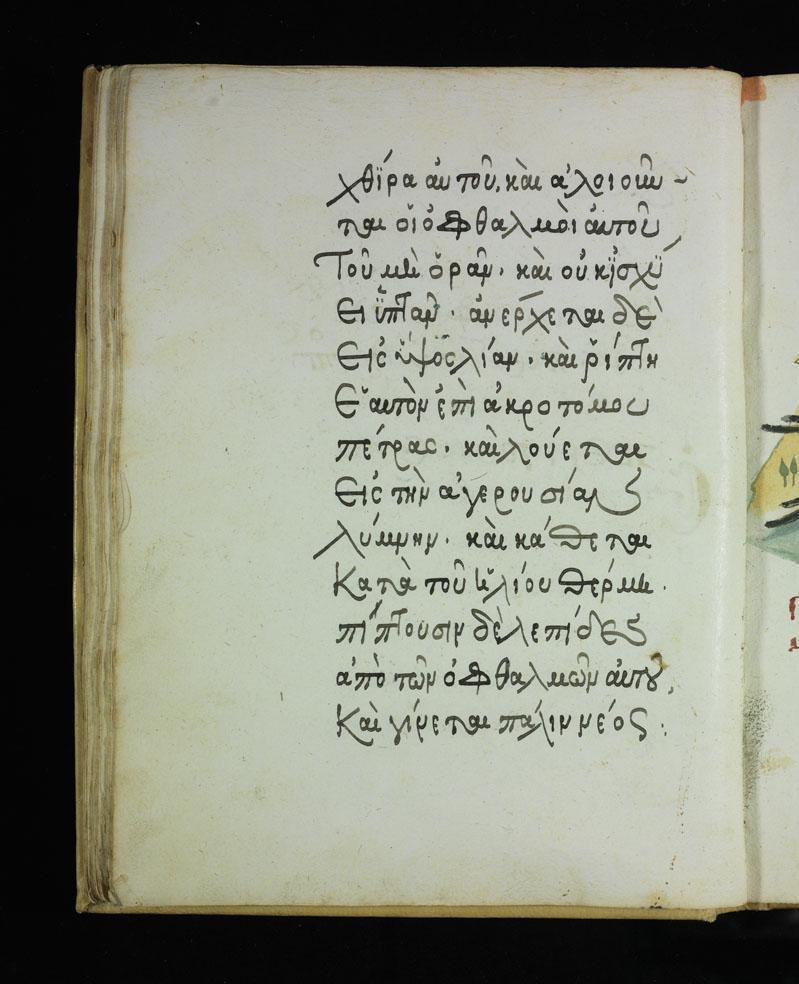 χθίρα αὐτοῦ, καὶ ἀλοιοῦν-
ται οἱ ὀφθαλμοὶ αὐτοῦ
Τοῦ μὴ ὁρᾶν· καὶ οὐκ ἰσχύ
ει ὑπτᾶν· ἀνερχεται δὲ
εἰς ὕψος λίαν· καὶ ῥίπτη
ἑαυτὸν ἐπὶ ἀκροτόμου
πέτρας· καὶ λούεται
εἰς τὴν ἀγερουσίαν
λύμνην· καὶ κάθεται
Κατὰ τοῦ ἡλίου θέρμη·
πίπτουσιν δὲ λεπίδες
ἀπὸ τῶν ὀφθαλμῶν αὐτοῦ,
Καὶ γίνεται πάλιν νέος: